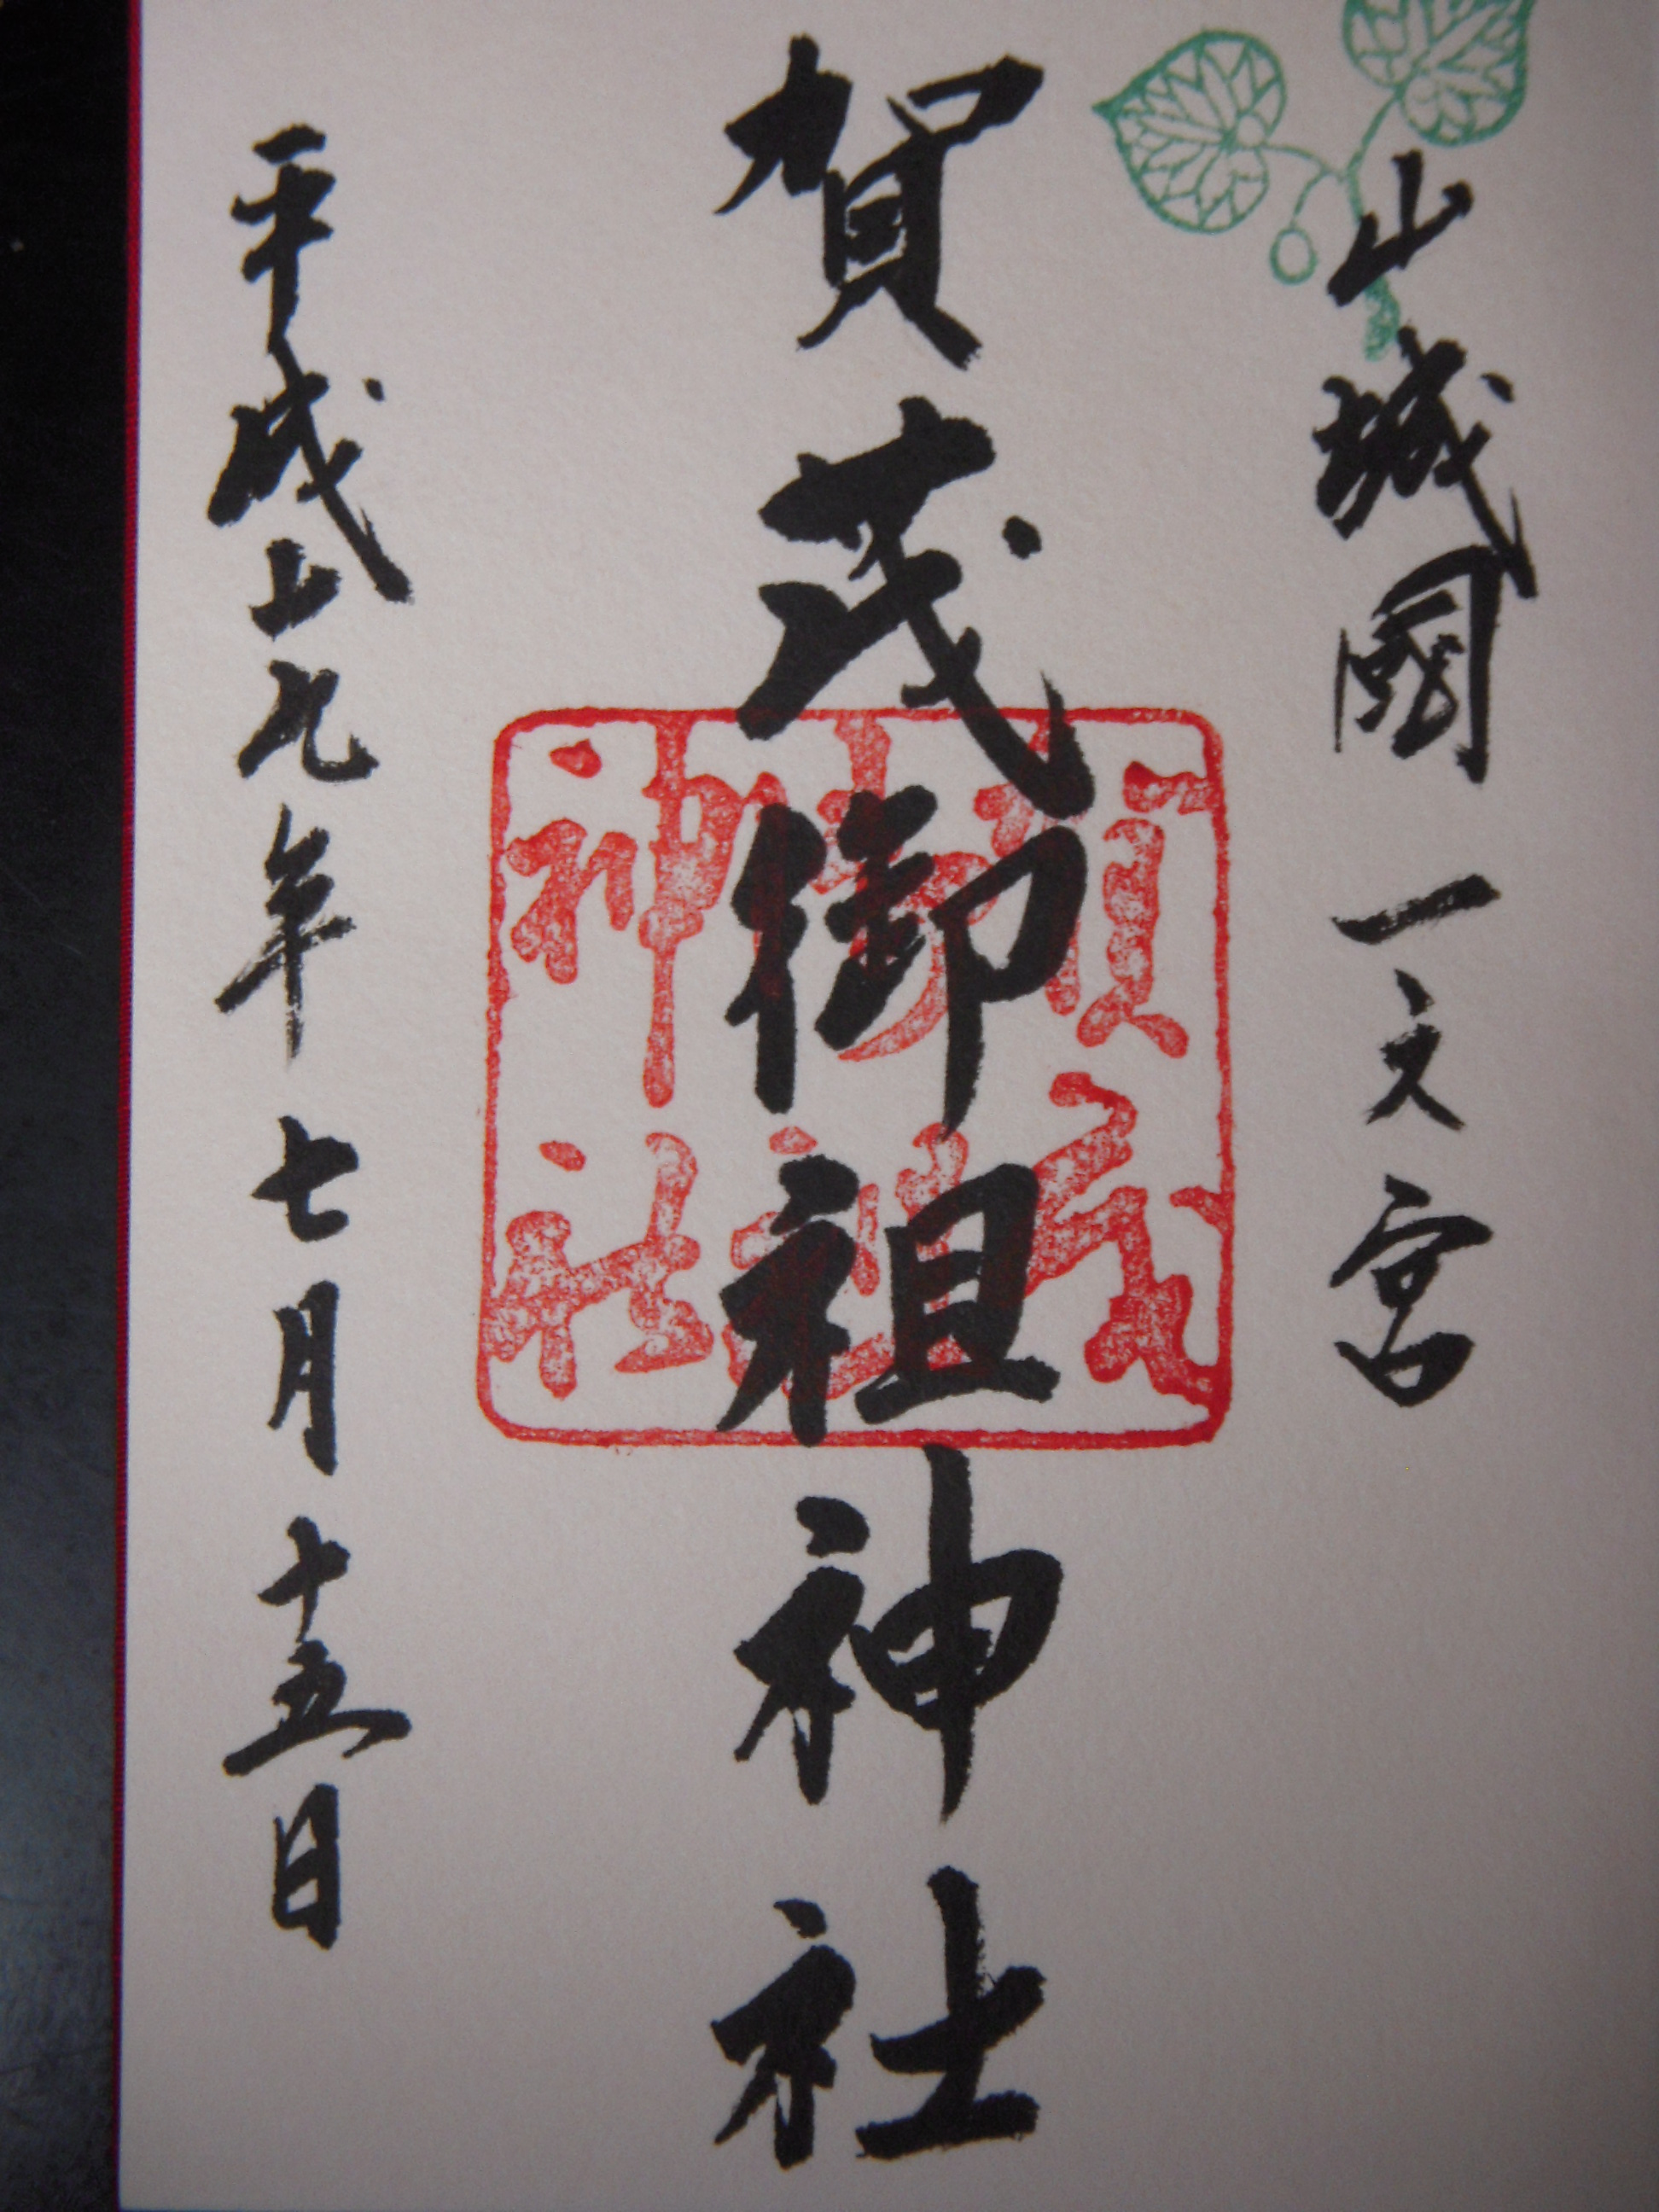 山城國 一之宮
賀茂御祖神社
平成廿九年 七月 十五日
神社